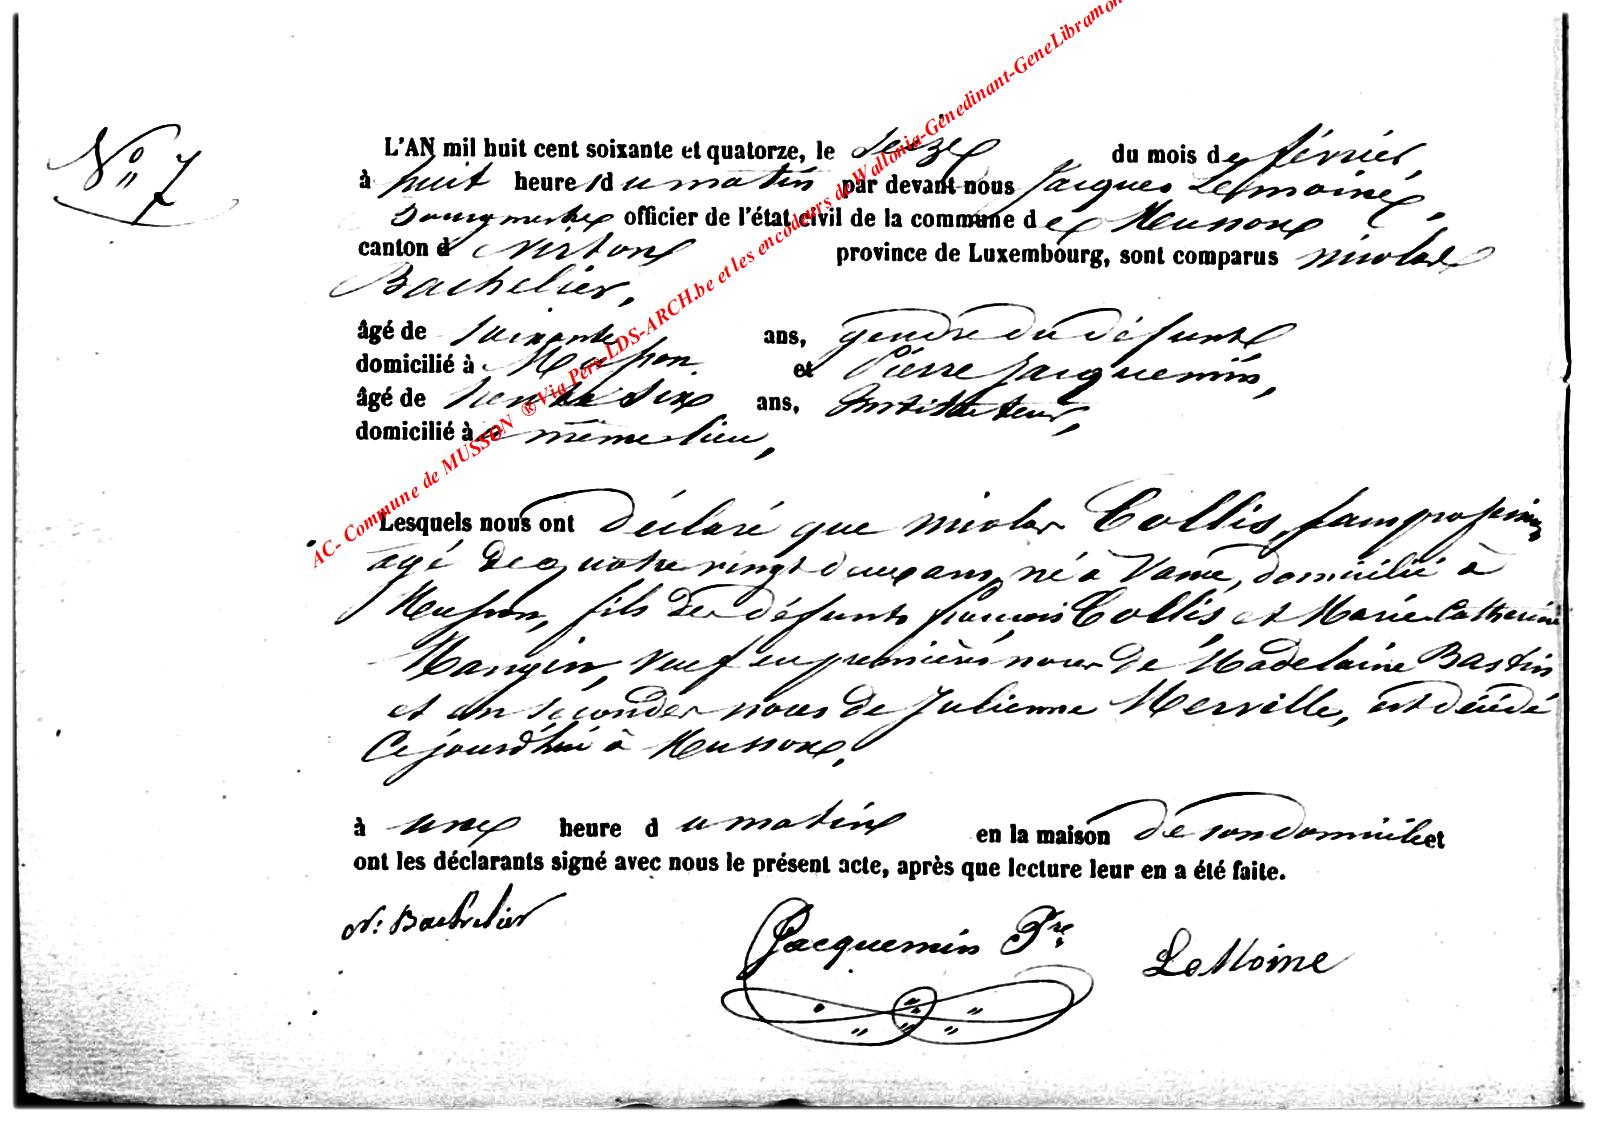 N° 7
L'AN mil huit cent soixante et quatorze, le seize du mois de février,
à huit heure s du matin par devant nous Jacques Lemoine,
Bourgmestre officier de l'état civil de la commune de Musson
canton d Virton province de Luxembourg, sont comparus Nicolas
Bachelier,
âgé de soixante ans, gendre du défunt
domicilié à Musson et Pierre Jacquemin,
âgé de trente six ans, Instituteur,
domicilié à même lieu,
Lesquels nous ont déclaré que Nicolas Collis, sans profession
agé de quatre vingt deux ans, né à domicilié à
Musson, fils de défunts françois Collis et Marie Catherine
Mangin, veuf en premières noces de Madelaine Bastin
et en secondes noces de Julienne Merville, est décédé
Cejourd'hui à Musson,
à une heure du matin en la maison de son domicile et
ont les déclarants signé avec nous le présent acte, après que lecture leur en a été faite.
N. Bachelier
Jacquemin Pre
LeMoine
AC- Commune de MUSSON ® Via Pers-LDS-ARCH.be et les encodeurs de Wallonia-Genedinant-GeneLibramon